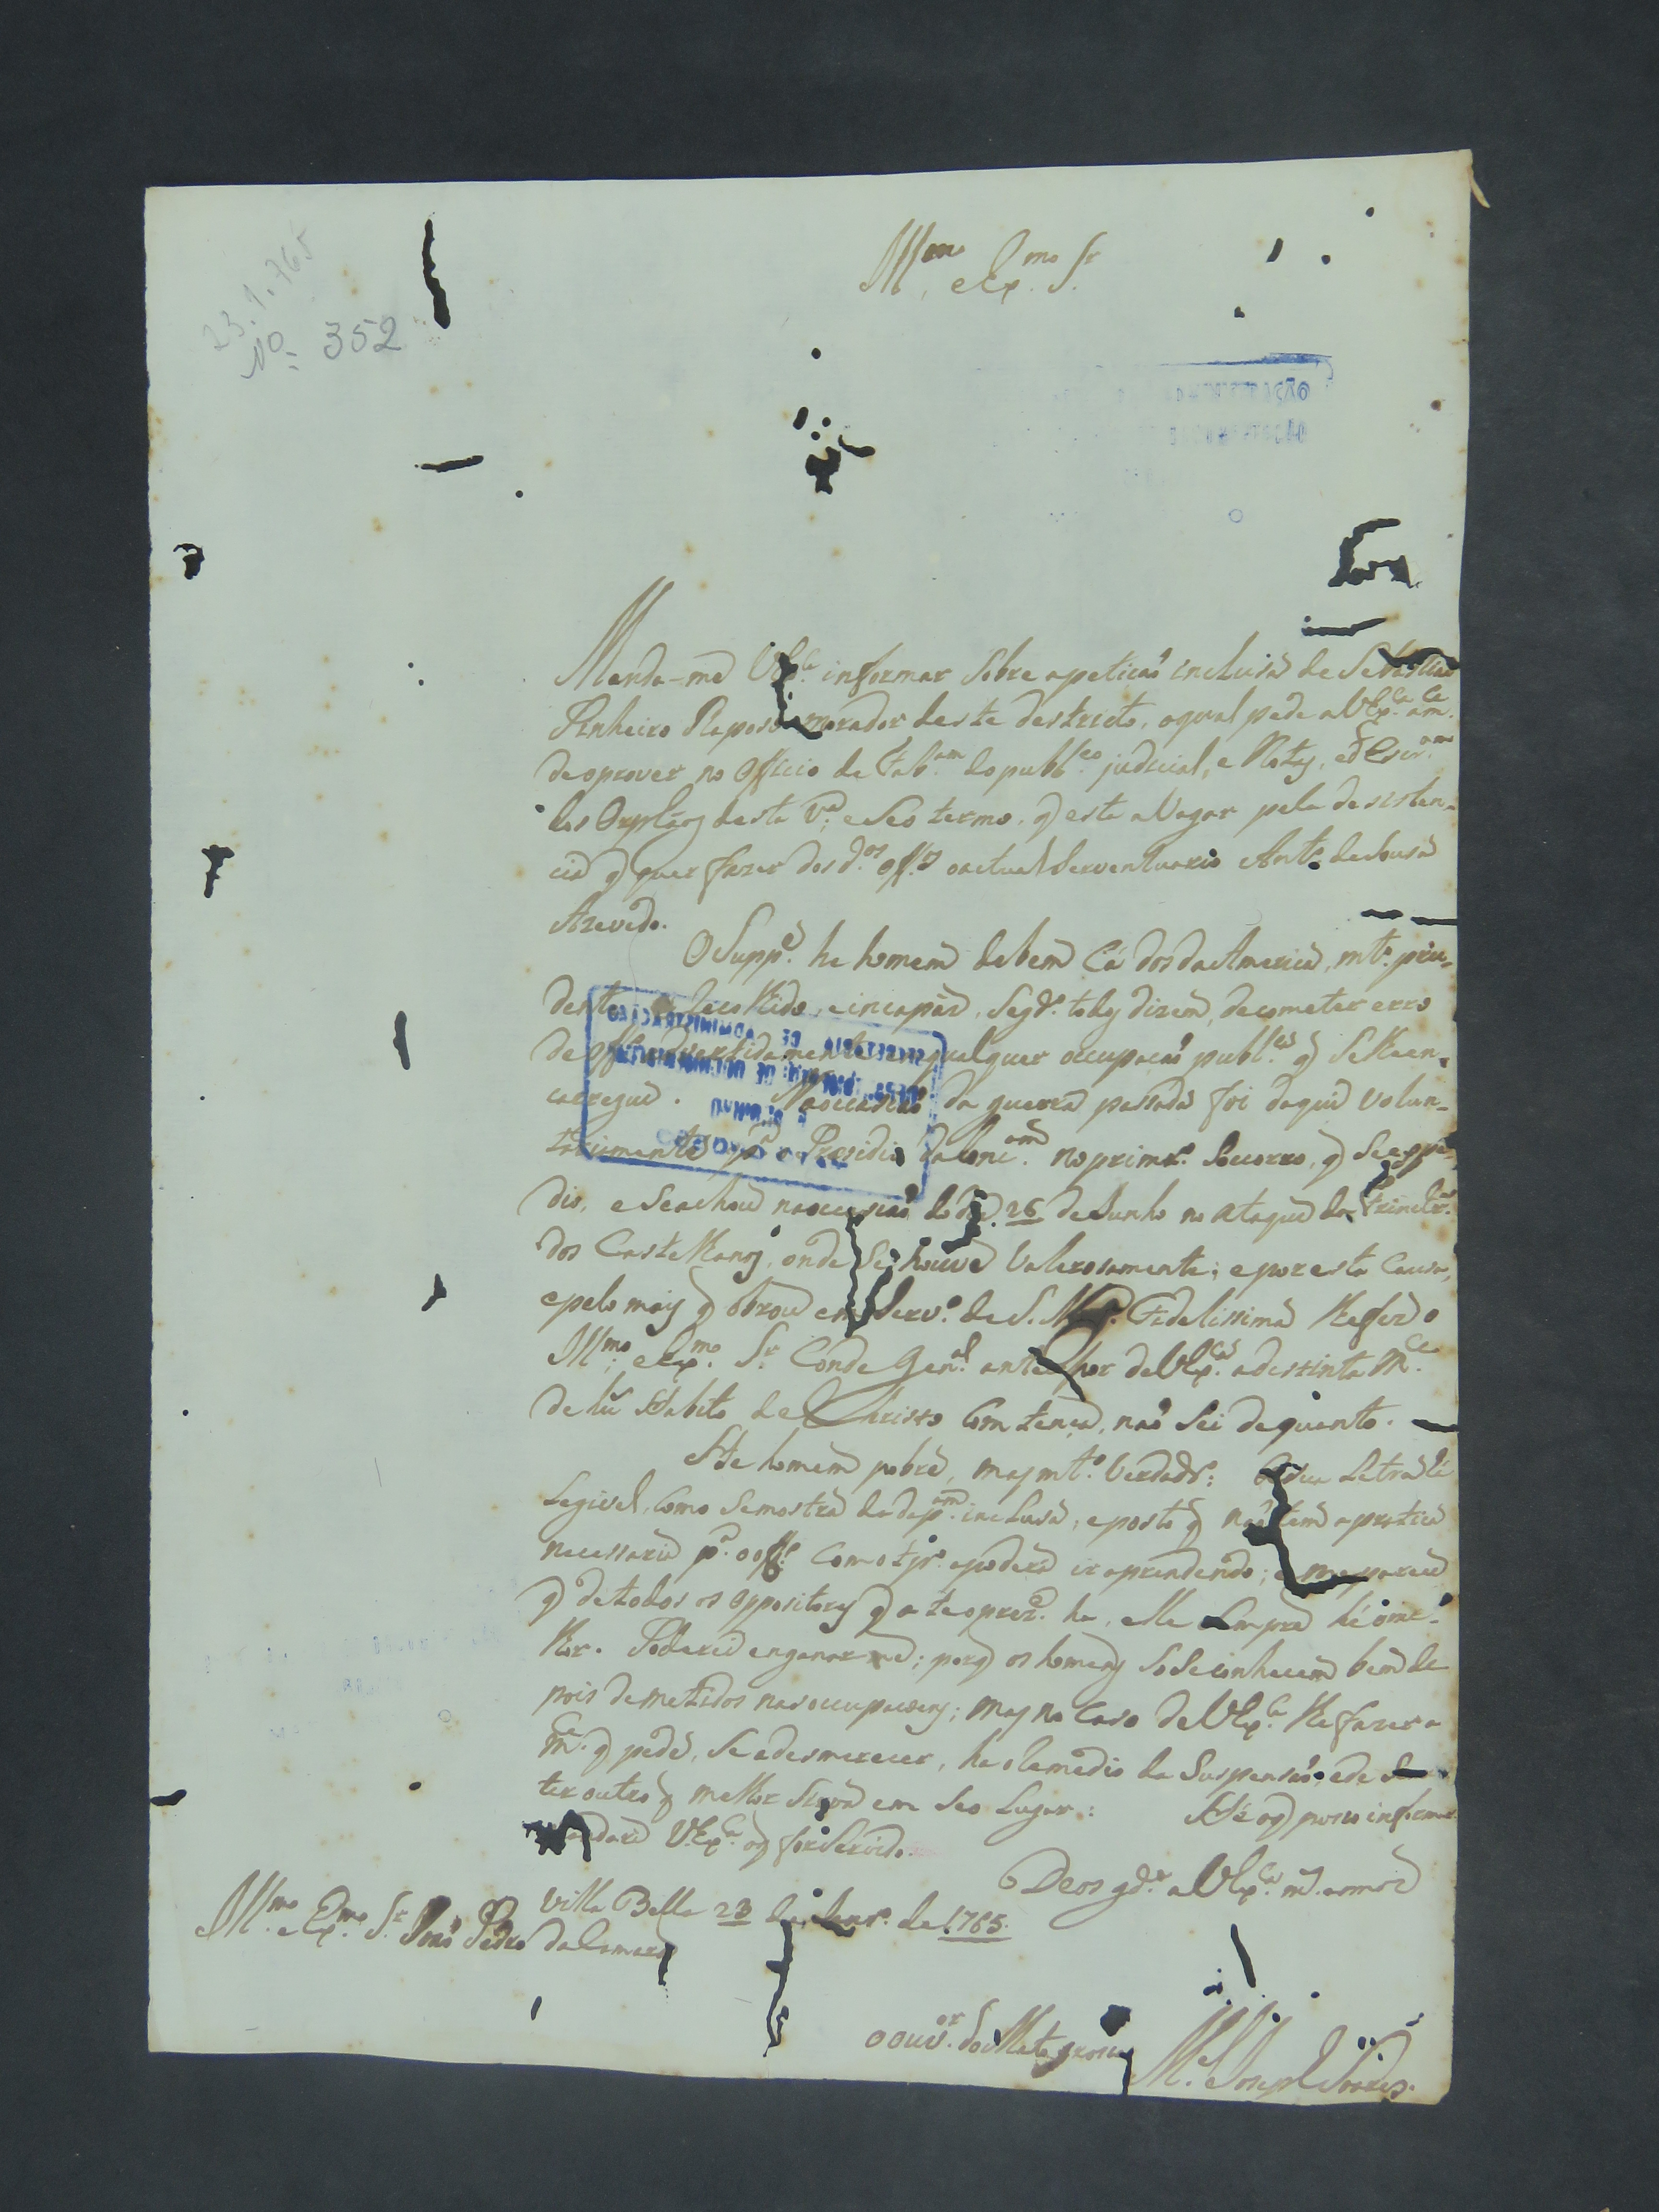 23.1.765
No. 352
Illmo. e Exmo. Sr.
Manda-me VExca. informar sobre apetição incluza de Sebastião
Pinheiro Rapozo morador deste destricto, oqual pede aVExca. am.ce
deoprover no Officio de Tab.am dopubl.co judicial, e Notas, e d'Escr.am
dos Orphãos desta Va. e Seo termo, q esta aVagar pela desisten-
cia q quer fazer dos d.os off.os oactual Serventuario Anto. deSousa
Azevedo.
OSupp.e he homem debem Cá dos daAmerica, mto. pru-
dente, recolhido, eincapaz, Segdo. todos dizem, decometer erro
de off.o advertidamente em qualquer occupação publ.ca q Selheen-
carregue. Naoccasião da guerra passada foi daqui Volun-
tariamente pa. o Presidio daConc.am noprimro. Soccorro, q Seexpe-
dio, e Seachou naoccasião do dia 26 deJunho no ataque da Trincheira
dos Castelhanos, onde Se houve Valerosamente; eporesta Causa,
epelo mais q obrou em Serv.o de S. Mag. Fidelissima lhefez o
Illmo. e Exmo. Sr. Conde Gen.al antecessor deVExca. adestinta M.ce
de hu Habito de Christo Com tença, não Sei dequanto.
He homem pobre, mas mto. Verdadro.: ASua Letra he
Legivel, Como Semostra da inclusa, eposto q não tem apratica
necessaria pa. ooff.o Como tpo. apoderá ir aprendendo; e meparece
q detodos os oppositores q ateopreze. ha, elle Sempre he ome-
lhor. Poderei enganarme; porq os homens SoSeconhecem bem de
pois demetidos nasoccupaçoens; mas no Caso deVExca. lhefazer a
m.ce q pede, Seadesmerecer, ha oRemedio da Suspensão, ede
ter outro q melhor Sirva em Seo Lugar: He oq posso informar
Mandará VExca. oq forServido.
Deos gde. aVExca. ms. annos
Villa Bella 23 de Janro. de 1765.
Illmo. e Exmo. Sr. João Pedro daCamara
oouvor. doMatogrosso
Mel. Joseph Soares.